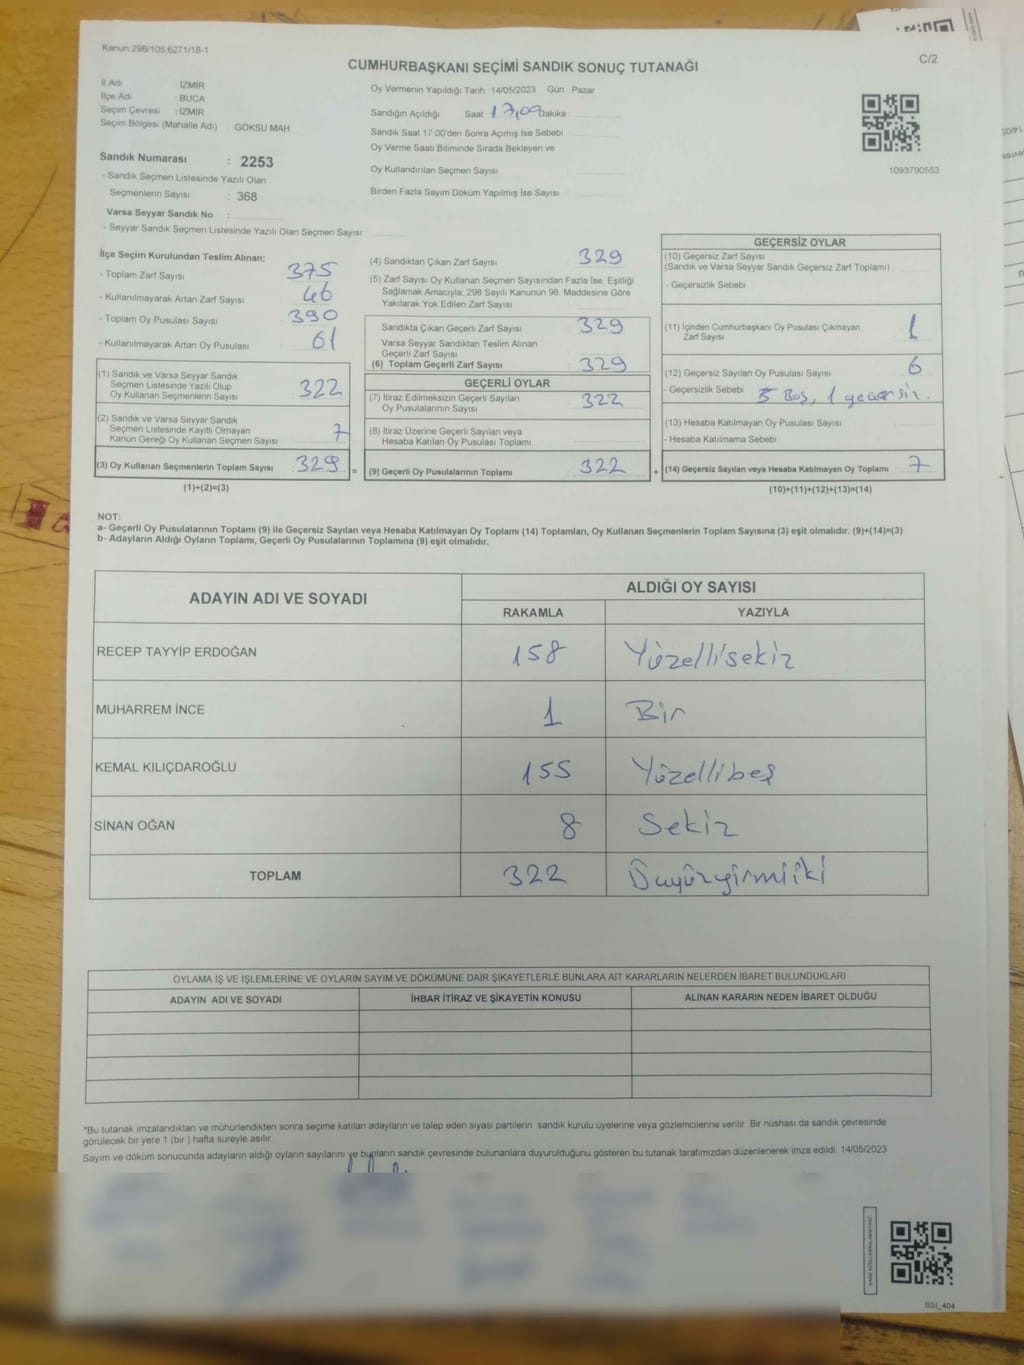 Kanun.298/105,6271/18-1
C/2
CUMHURBAŞKANI SEÇİMİ SANDIK SONUÇ TUTANAĞI
İl Adı : İZMİR
İlçe Adı : BUCA
Seçim Çevresi : İZMİR
Seçim Bölgesi (Mahalle Adı) : GÖKSU MAH
Sandık Numarası : 2253
- Sandık Seçmen Listesinde Yazılı Olan
Seçmenlerin Sayısı : 368
Varsa Seyyar Sandık No :
- Seyyar Sandık Seçmen Listesinde Yazılı Olan Seçmen Sayısı
Oy Vermenin Yapıldığı Tarih 14/05/2023 Gün Pazar
Sandığın Açıldığı Saat 17,09 Dakika
Sandık Saat 17:00'den Sonra Açımış İse Sebebi
Oy Verme Saati Bitiminde Sırada Bekleyen ve
Oy Kullandırılan Seçmen Sayısı
Birden Fazla Sayım Döküm Yapılmış İse Sayısı
1093790553
İlçe Seçim Kurulundan Teslim Alınan;
- Toplam Zarf Sayısı 375
- Kullanılmayarak Artan Zarf Sayısı 46
- Toplam Oy Pusulası Sayısı 390
- Kullanılmayarak Artan Oy Pusulası 61
(1) Sandık ve Varsa Seyyar Sandık
Seçmen Listesinde Yazılı Olup
Oy Kullanan Seçmenlerin Sayısı 322
(2) Sandık ve Varsa Seyyar Sandık
Seçmen Listesinde Kayıtlı Olmayan
Kanun Gereği Oy Kullanan Seçmen Sayısı 7
(3) Oy Kullanan Seçmenlerin Toplam Sayısı 329 =
(1)+(2)=(3)
(4) Sandıktan Çıkan Zarf Sayısı 329
(5) Zarf Sayısı Oy Kullanan Seçmen Sayısından Fazla İse, Eşitliği
Sağlamak Amacıyla, 298 Sayılı Kanunun 98. Maddesine Göre
Yakılarak Yok Edilen Zarf Sayısı
Sandıkta Çıkan Geçerli Zarf Sayısı 329
Varsa Seyyar Sandıktan Teslim Alınan
Geçerli Zarf Sayısı
(6) Toplam Geçerli Zarf Sayısı 329
GEÇERLİ OYLAR
(7) İtiraz Edilmeksizin Geçerli Sayılan
Oy Pusulalarının Sayısı 322
(8) İtiraz Üzerine Geçerli Sayılan veya
Hesaba Katılan Oy Pusulası Toplamı
(9) Geçerli Oy Pusulalarının Toplamı 322 +
GEÇERSİZ OYLAR
(10) Geçersiz Zarf Sayısı
(Sandık ve Varsa Seyyar Sandık Geçersiz Zarf Toplamı)
- Geçersizlik Sebebi
(11) İçinden Cumhurbaşkanı Oy Pusulası Çıkmayan
Zarf Sayısı 1
(12) Geçersiz Sayılan Oy Pusulası Sayısı 6
- Geçersizlik Sebebi 5 Boş, 1 geçersiz.
(13) Hesaba Katılmayan Oy Pusulası Sayısı
- Hesaba Katılmama Sebebi
(14) Geçersiz Sayılan veya Hesaba Katılmayan Oy Toplamı 7
(10)+(11)+(12)+(13)=(14)
NOT:
a- Geçerli Oy Pusulalarının Toplamı (9) ile Geçersiz Sayılan veya Hesaba Katılmayan Oy Toplamı (14) Toplamları, Oy Kullanan Seçmenlerin Toplam Sayısına (3) eşit olmalıdır. (9)+(14)=(3)
b- Adayların Aldığı Oyların Toplamı, Geçerli Oy Pusulalarının Toplamına (9) eşit olmalıdır.
ADAYIN ADI VE SOYADI
ALDIĞI OY SAYISI
RAKAMLA YAZIYLA
RECEP TAYYİP ERDOĞAN 158 Yüzellisekiz
MUHARREM İNCE 1 Bir
KEMAL KILIÇDAROĞLU 155 Yüzellibeş
SİNAN OĞAN 8 Sekiz
TOPLAM 322 Üuyüzyirmiiki
OYLAMA İŞ VE İŞLEMLERİNE VE OYLARIN SAYIM VE DÖKÜMÜNE DAİR ŞİKAYETLERLE BUNLARA AİT KARARLARIN NELERDEN İBARET BULUNDUKLARI
ADAYIN ADI VE SOYADI İHBAR İTİRAZ VE ŞİKAYETİN KONUSU ALINAN KARARIN NEDEN İBARET OLDUĞU
*Bu tutanak imzalandıktan ve mühürlendikten sonra seçime katılan adayların ve talep eden siyasi partilerin sandık kurulu üyelerine veya gözlemcilerine verilir. Bir nüshası da sandık çevresinde
görülecek bir yere 1 (bir ) hafta süreyle asılır.
Sayım ve döküm sonucunda adayların aldığı oyların sayılarını ve bunların sandık çevresinde bulunanlara duyurulduğunu gösteren bu tutanak tarafımızdan düzenlenerek imza edildi. 14/05/2023
SSI_404